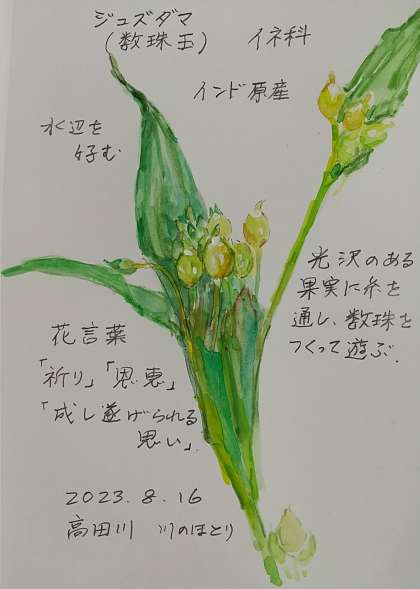 ジュズダマ
(数珠玉)
イネ科
インド原産
水辺を
好む
光沢のある
果実に糸を
通し、数珠を
つくって遊ぶ.
花言葉
「祈り」「恩恵」
「成し遂げられる
思い」.
2023.8.16
高田川 川のほとり